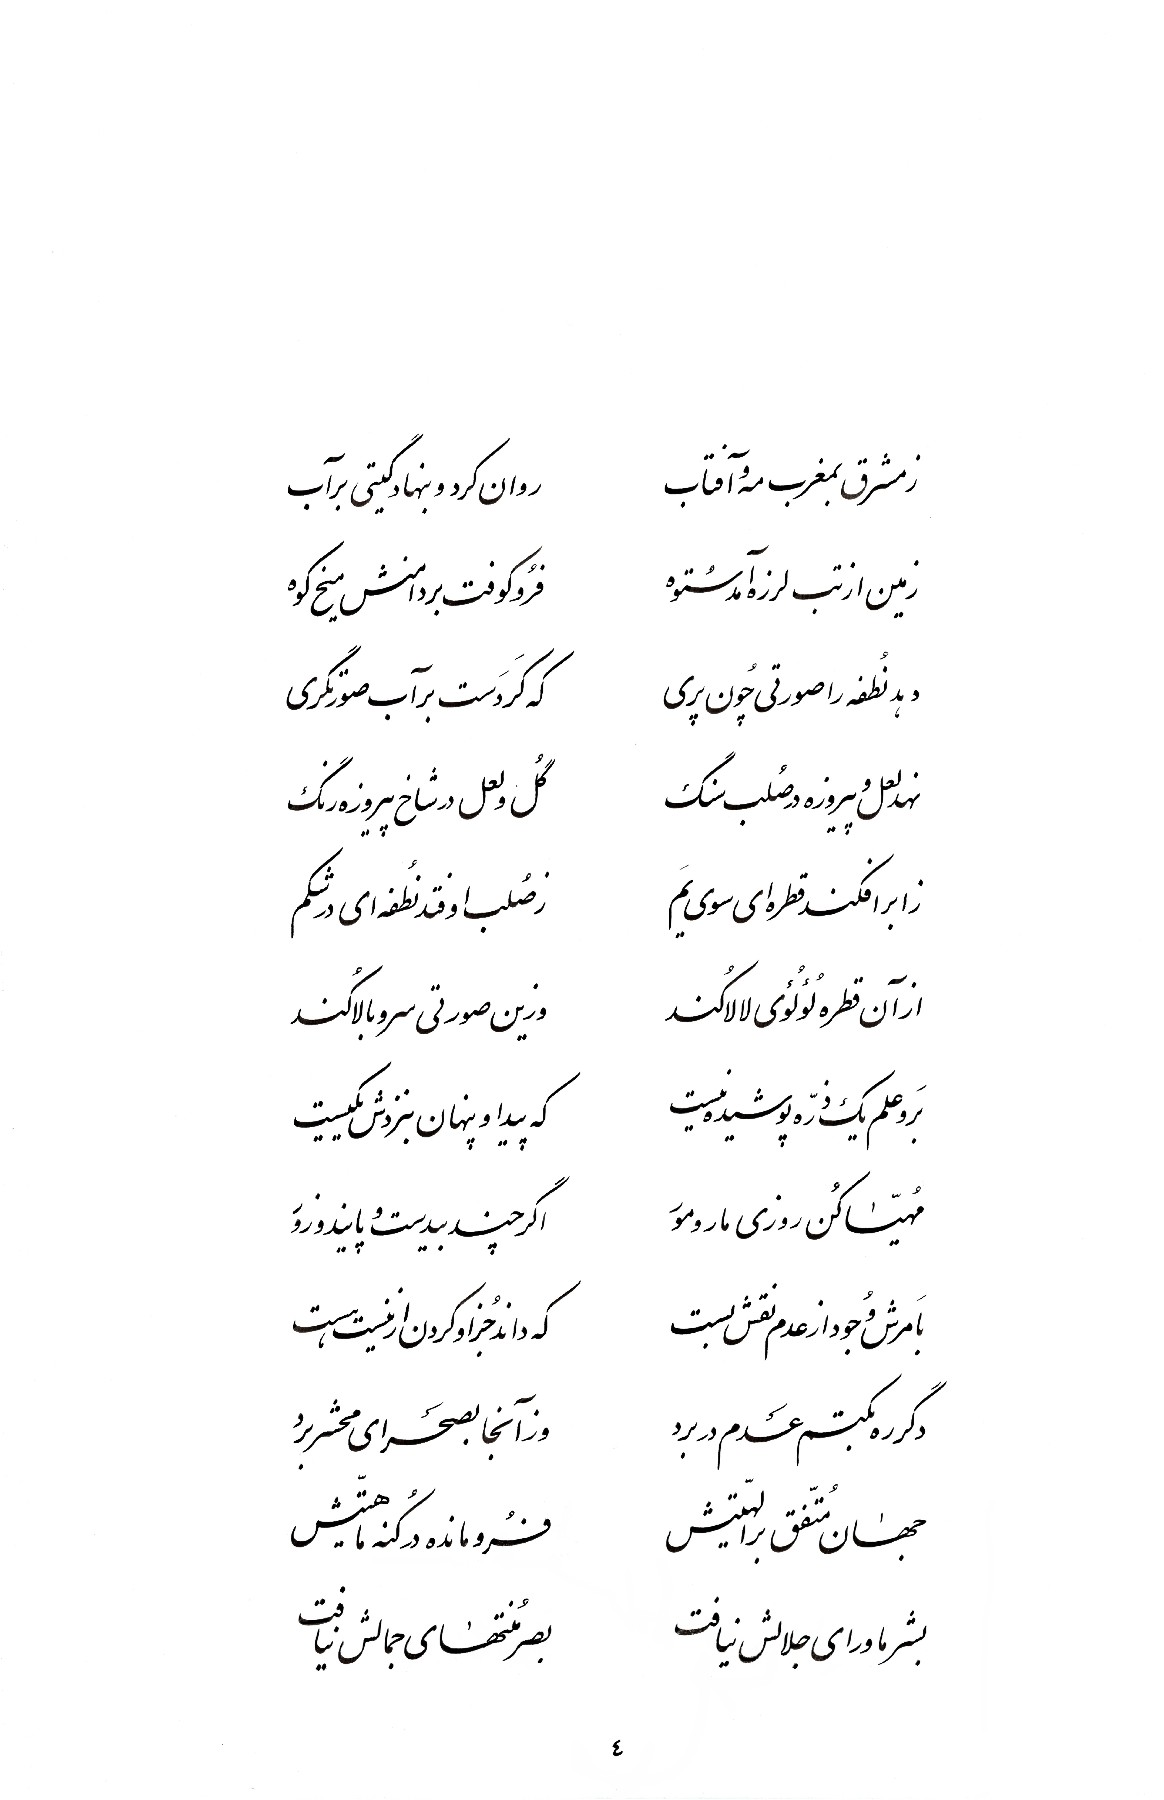 ز مشرق بمغرب مه و آفتاب روان کرد و بنهاد گیتی بر آب
زمین از تب لرزه آمد سُتوه فرُو کوفت بر دامنش میخ کوه
دهد نُطفه را صورتی چُون پری که کَردَست بر آب صورتگری
نهد لعل و پیروزه در صُلب سنگ گُل و لعل در شاخ پیروزه رنگ
ز ابر افکند قطره‌ای سوی یَم ز صُلب اوفتد نُطفه‌ای در شکم
از آن قطره لُؤلُؤی لالا کُند وزین صورتی سرو بالا کُند
بَرو علم یک ذرّه پوشیده نیست که پیدا و پنهان بنزدش یکیست
مُهیّا کُن روزی مار و مور اگر چند بیدست و پایند و زور
بَامرش وُجود از عدم نقش بست که داند جُز او کردن از نیست هست
دگر ره بکتم عَدم در برد وز آنجا بصحَرای محشر برد
جهان مُتّفق بر الهیّتش فرُومانده در کُنه ماهیّتش
بشر ماورای جلالش نیافت بصر مُنتهای جمالش نیافت
٤